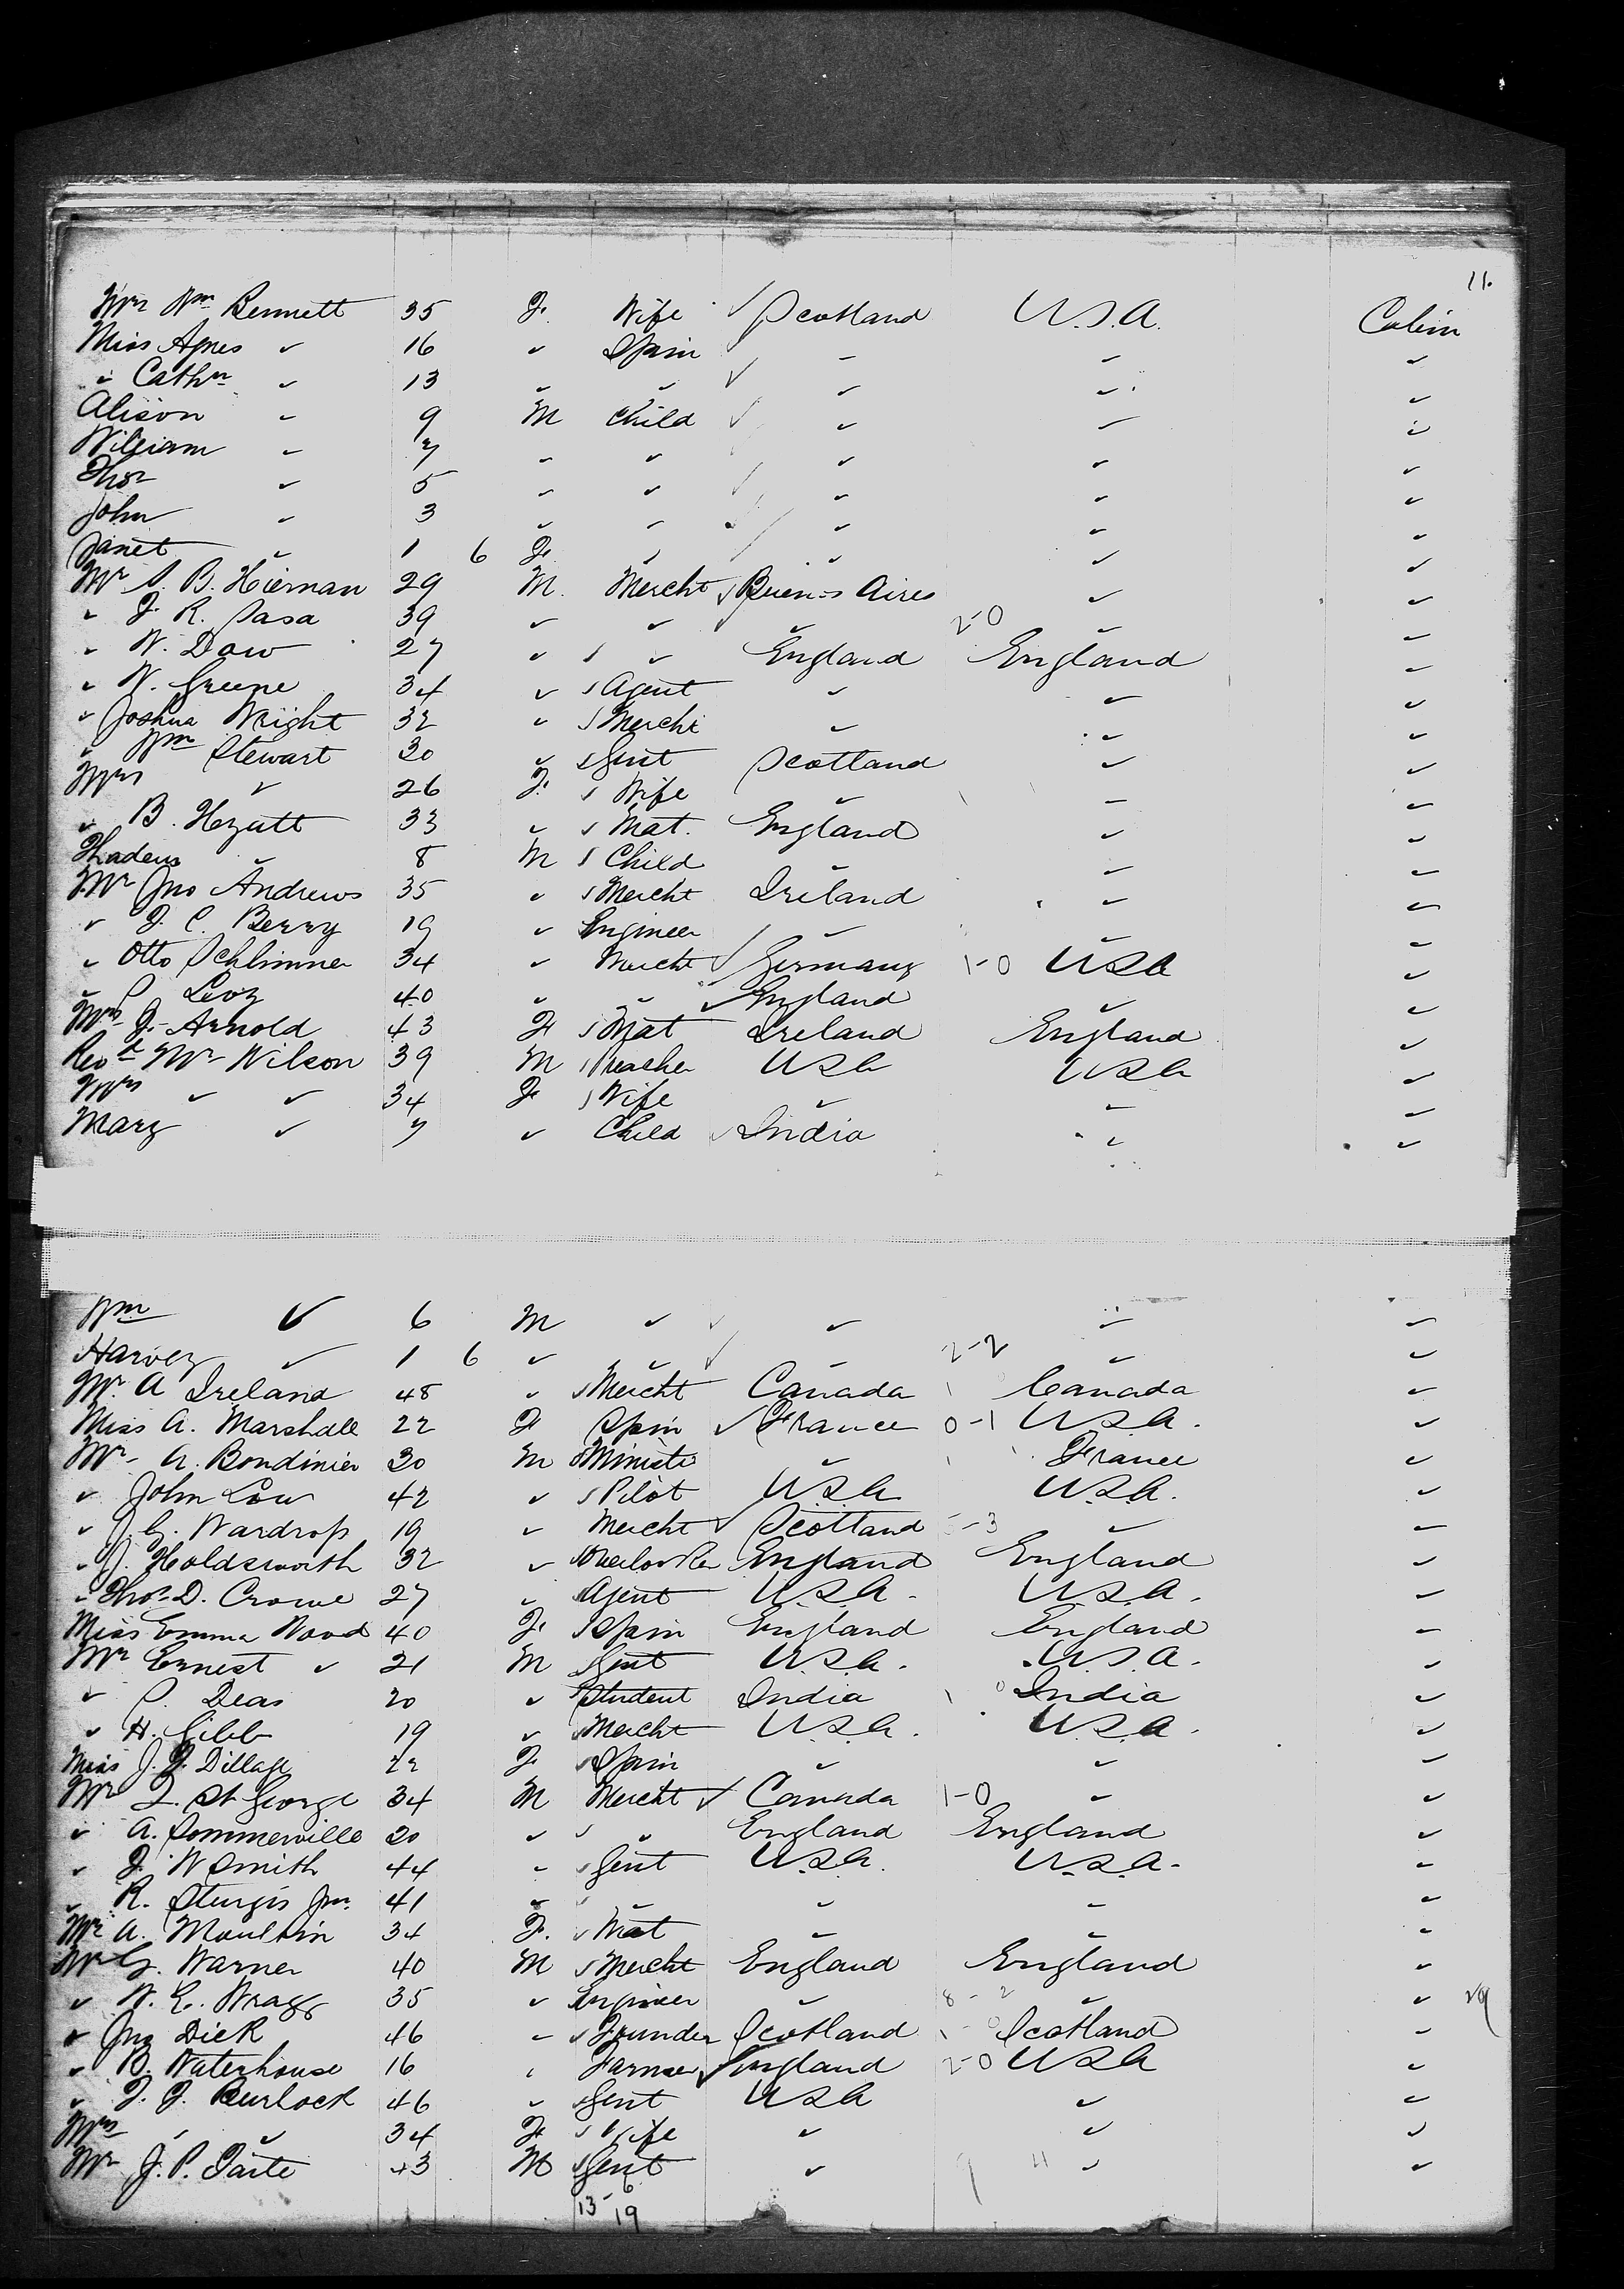 11.
Mrs Wm Bennett 35 F. Wife Scotland U.S.A. Cabin
Miss Agnes " 16 " Spin " " "
" Cathn " 13 " " " " "
Alison " 9 M Child " " "
William " 7 " " " " "
Thos " 5 " " " " "
John " 3 " " " " "
Janet " 1 6 F. " " " "
Mr S. B. Hiernan 29 M. Mercht Buenos Aires " "
" F. R. Sasa 39 " " " 2-0 " "
" W. Dow 27 " " England England "
" W. Greene 34 " Agent " " "
" Joshua Wright 32 " Mercht " " "
" Wm Stewart 30 " Gent Scotland " "
Mrs " 26 F. Wife " " "
" B. 33 " Mat. England " "
" 8 M Child " " "
Mr Jno Andrews 35 " Mercht Ireland " "
" F. C. Berry 19 " Engineer " " "
" Otto Schlimmer 34 " Mercht Germany 1-0 USA "
" S Levy 40 " " England " "
Mrs J. Arnold 43 F Mat Ireland England "
Revd Mr Wilson 39 M Preacher USA USA "
Mrs " " 34 F Wife " " "
Mary " 7 " Child India " "
Wm " 6 M " " " "
Harvey " 1 6 " " " 2-2 " "
Mr. A Ireland 48 " Mercht Canada Canada "
Miss A. Marshall 22 F Spin France 0-1 USA. "
Mr. A. Bondinier 30 M Ministr " France "
" John Low 42 " Pilot U.S.A U.S.A. "
" J. G. Wardrop 19 " Mercht Scotland -3 " "
" J. Holdsworth 32 " Overlooker England England "
" Thos. D. Crowe 27 " Agent U.S.A. U.S.A. "
Miss Emma Wood 40 F. Spin England England "
Mr Ernest " 21 M Gent U.S.A. U.S.A. "
" S. Deas 20 " Student India India "
" H. Gibb 19 " Mercht U.S.A. U.S.A. "
Miss J. F. 22 F. Spin " " "
Mr L. St George 34 M Mercht Canada 1-0 " "
" A. Sommerville 20 " " England England "
" F. W Smith 44 " Gent U.S.A. U.S.A. "
" R. Sturgis Jnr. 41 " " " " "
A. Moulton 34 F. Mat " " "
Mr G. Warner 40 M Mercht England England "
" W. G. Wragg 35 " Engineer " 8-2 " " 29
" Jno Dick 46 " Founder Scotland Scotland "
" B. Waterhouse 16 " Farmer England 2-0 USA "
" F. J. Burlock 46 " Gent USA " "
Mrs " " 34 F Wife " " "
Mr J. P. 43 M Gent " " "
13 19